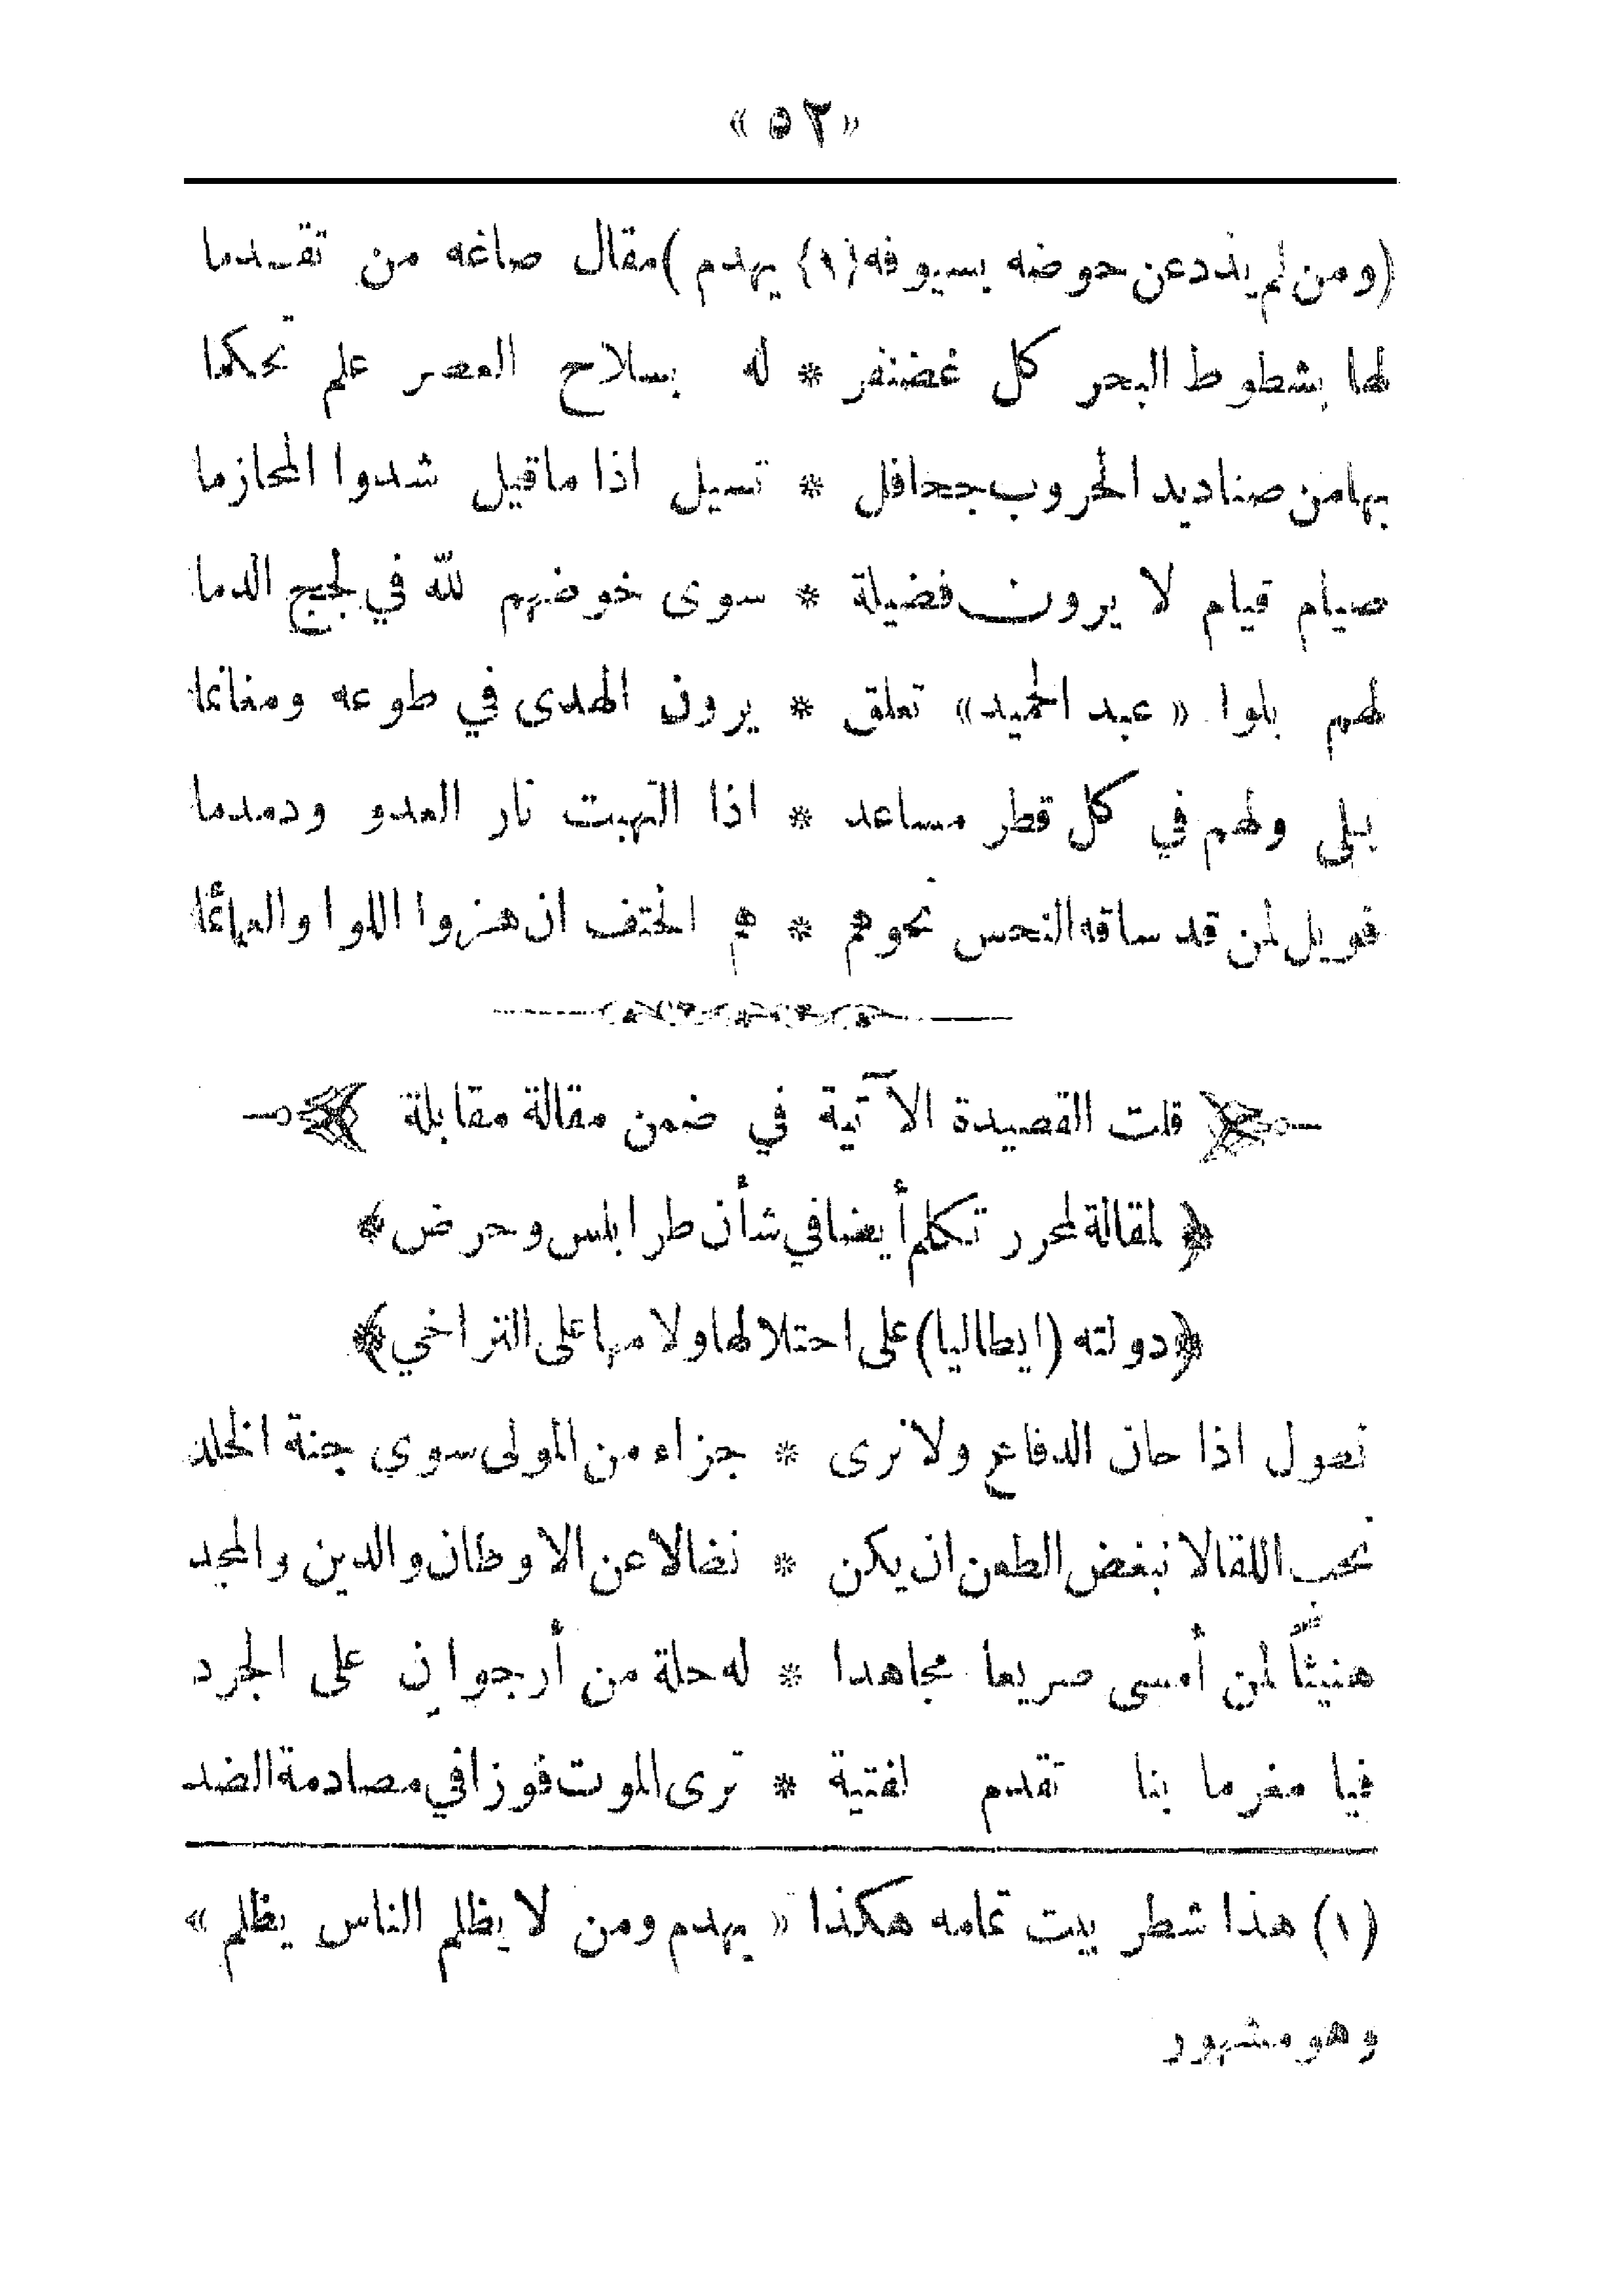 «٥٢»
(ومن لم يذد عن حوضه بسيوفه (١) يهدم) مقال صاغه من تقدما
لها بشطوط البحر كل غضنفر * له بسلاح العصر علم تحكما
بها من صناديد الحروب جحافل * تسيل اذا ما قيل شدوا المحازما
صيام قيام لا يرون فضيلة * سوى خوضهم لله في لجيج الدما
لهم بلوا «عبد الحميد» تعلق * يرون الهدى في طوعه ومغانما
بلى ولهم في كل قطر مساعد * اذا التهبت نار العدو ودمدما
فويل لمن قد ساقه النحس نحوهم * هم الحتف ان هزوا اللوا والعمائما
قلت القصيدة الآتية في ضمن مقالة مقابلة
﴿لمقالة لمحرر تكلم أيضا في شأن طرابلس وحرض﴾
﴿دولته (ايطاليا) على احتلالها ولامها على التراخي﴾
نصول اذا حان الدفاع ولا نرى * جزاء من المولى سوي جنة الخلد
نحب اللقا لا نبغض الطعن ان يكن * نضالا عن الاوطان والدين والمجد
هنيئاً لمن أمسى صريعا مجاهدا * له حلة من أرجوانٍ على الجرد
فيا مغرما بنا تقدم لفتية * ترى الموت فوزا في مصادمة الضد
(١) هذا شطر بيت تمامه هكذا «يهدم ومن لا يظلم الناس يظلم»
وهو مشهور